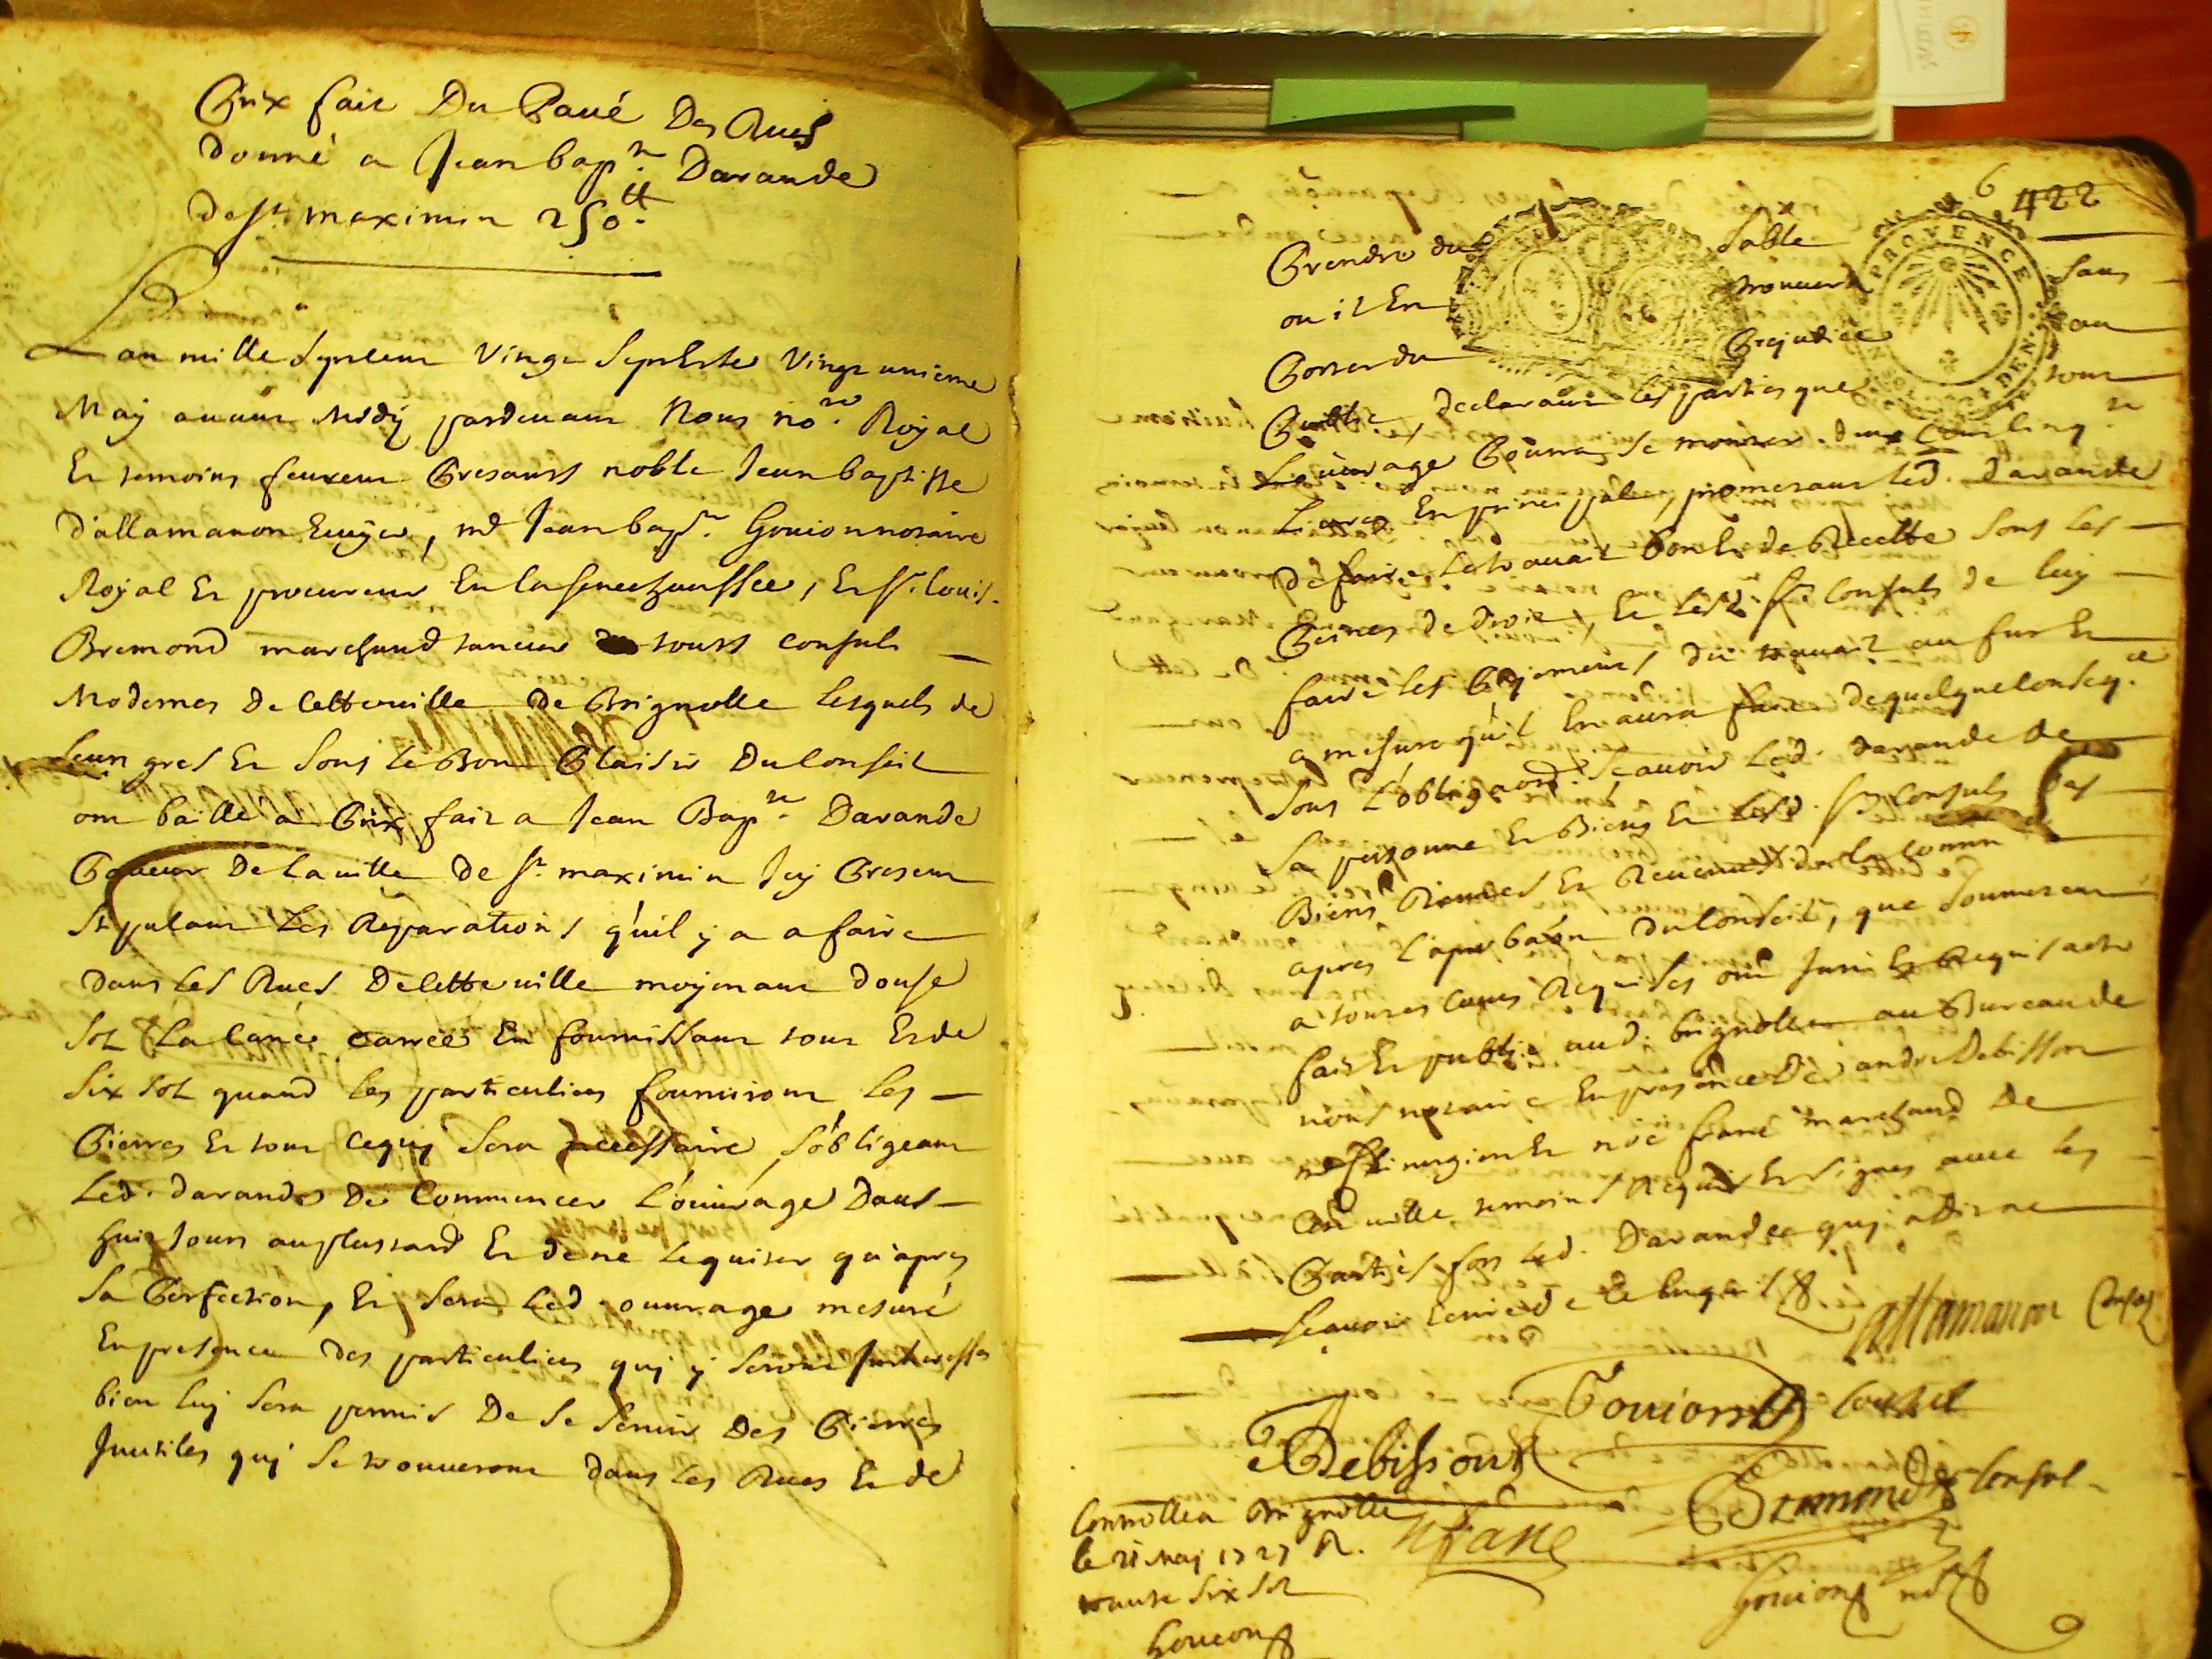 Prix fait Du Pavé Des Rues
donné a Jean bap.te Davande
de st. maximin 250 tt.
L'an mille Sept cens Vingt Sept Et le Vingt unieme
May avant Midy pardevant Nous no.re Royal
Et temoins feurent Presants noble Jean baptiste
d'allamanon Ecuyer, me Jean bap.te Gouion notaire
Royal Et procureur En la seneschaussée, Et sr. Louis
Bremond marchand taneur touts consuls
Modernes De Cette ville De Brignolle Lesquels de
Leur gres Et Sous le Bon Plaisir Du Conseil
ont baillé a Prix fait a Jean Bap.te Davande
Paveur De la ville De st. maximin Icy Present
Stipulant Les Reparations qu'il y a a faire
dans Les Rues De Cette ville moyenant douse
Sol La Cane carrée En fournissant tout Et de
Six Sol quand les particuliers fourniront les
Pierres Et tout ce quy Sera necessaire, S'obligeant
Led. davande De Commencer L'ouvrage Dans
huit Jours au plus tard Et de ne le quiter qu'apres
Sa Perfection, Et Sera Led. ouvrage mesuré
En presence des particuliers quy y Seront Interessés
bien luy Sera permis De Se Servir Des Pierres
Inutiles quy Se trouveront dans les Rues Et de
6
422
Prendre du Sable
ou il En trouvera Sans
Porter du Prejudice au
Public, declarant les parties que tout
L'ouvrage Pourra Se monter deux Cens Cinq.te
Livres En principal, prometant Led. Davande
de faire Le travail Bon Et de Recette Sous les
Peines de droit, Et Lesd. srs Consuls de luy
faire les Payemens du travail au fur Et
a mesure qu'il En aura fait de quelque Conseq.ce
Sous L'obliga.on Scavoir Led. Davande De
Sa personne Et Biens Et Lesd. srs Consuls Des
Biens Rentes Et Revenus de la Comm.
apres L'aprobaon Du Conseil, que Soumetent
a toutes Cours Requises ont Juré Et Requis acte
fait Et publié aud. brignolle au Bureau de
nous notaire En presence De andre Debisson
me Chirurgien Et marchand De
Cette ville temoins Requis Et Signes avec Les
Parties fors Led. Davande quy a dit ne
Scavoir Ecrire De Ce Enquis
allamanon Consul
Gouion Consul
ADebisson
Bremond Consul
Controllé a Brignolle
le 21 May 1727 R.
Six Sol
Goucon
Gouion no.re